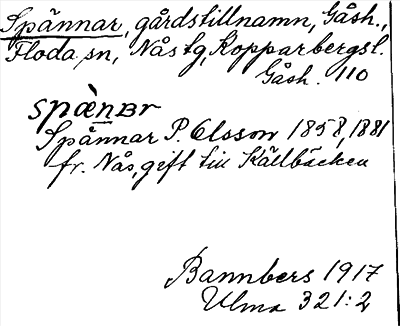 Spännar, gårdstillnamn, Gåsh.,
Floda sn, Nås tg, Kopparbergs l.
Gåsh. 110
spä̀nar
Spännar P. Olsson 1858, 1881
fr. Nås, gift till Källbäcken
Bannbers 1917
Ulma 321:2